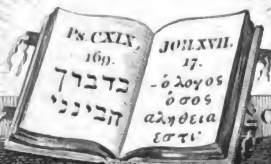 Ps. CXIX.
169.
כדברך
הבינני
JOH. XVII.
17.
ὁ λογος
ὁ σος
αληθεια
εστιν